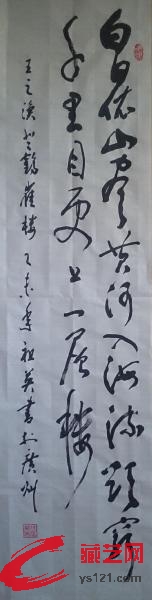 白日依山尽黄河入海流欲穷
千里目更上一层楼
王之涣登鹳雀楼 乙未年祖英书于广州
藏艺网
ys121.com